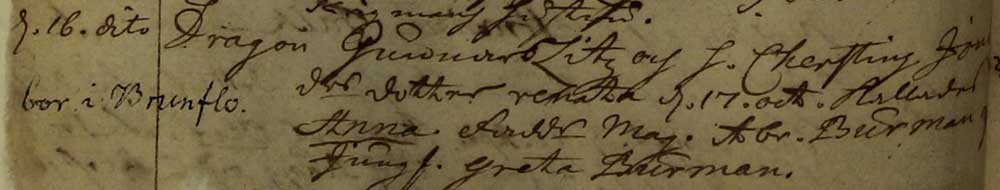 d. 16. dito Dragon Gunnard Litz og h. Cherstin Jöns
bor i Brunflo. des dotter renata d. 17. oct. Kallades
Anna. Faddr Mag. Abr. Burman
Jungf. Greta Burman.